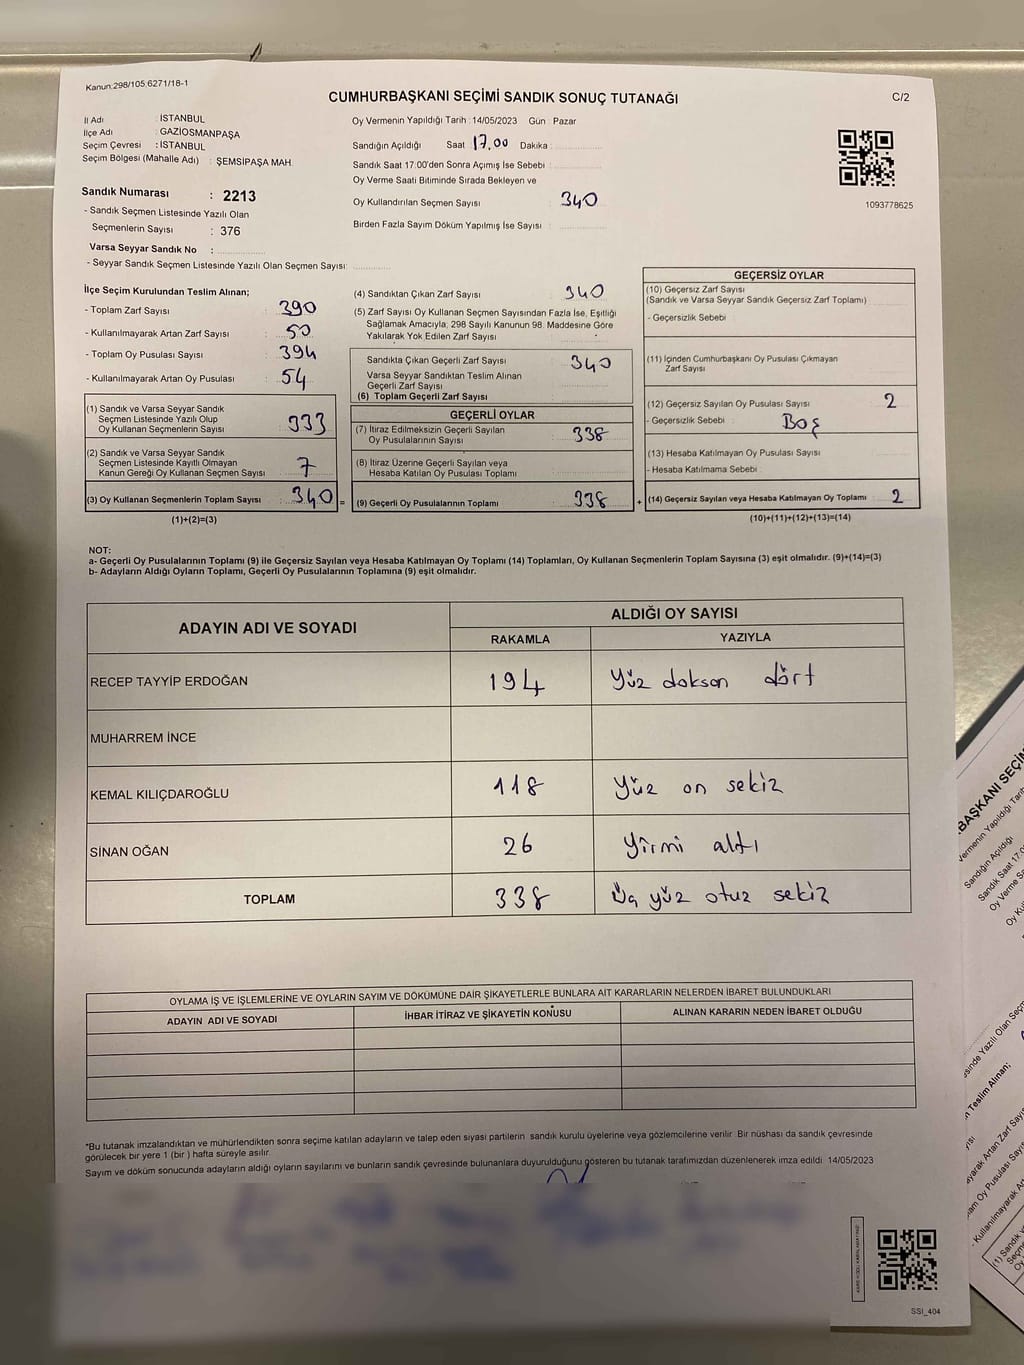 Kanun:298/105;6271/18-1
CUMHURBAŞKANI SEÇİMİ SANDIK SONUÇ TUTANAĞI
C/2
İl Adı : İSTANBUL
İlçe Adı : GAZİOSMANPAŞA
Seçim Çevresi : İSTANBUL
Seçim Bölgesi (Mahalle Adı) : ŞEMSİPAŞA MAH.
Sandık Numarası : 2213
- Sandık Seçmen Listesinde Yazılı Olan
Seçmenlerin Sayısı : 376
Varsa Seyyar Sandık No :
- Seyyar Sandık Seçmen Listesinde Yazılı Olan Seçmen Sayısı:
Oy Vermenin Yapıldığı Tarih : 14/05/2023 Gün : Pazar
Sandığın Açıldığı Saat 17.00 Dakika :
Sandık Saat 17:00'den Sonra Açımış İse Sebebi :
Oy Verme Saati Bitiminde Sırada Bekleyen ve
Oy Kullandırılan Seçmen Sayısı : 340
Birden Fazla Sayım Döküm Yapılmış İse Sayısı :
1093778625
İlçe Seçim Kurulundan Teslim Alınan;
- Toplam Zarf Sayısı : 390
- Kullanılmayarak Artan Zarf Sayısı : 50
- Toplam Oy Pusulası Sayısı : 394
- Kullanılmayarak Artan Oy Pusulası : 54
(1) Sandık ve Varsa Seyyar Sandık
Seçmen Listesinde Yazılı Olup
Oy Kullanan Seçmenlerin Sayısı : 333
(2) Sandık ve Varsa Seyyar Sandık
Seçmen Listesinde Kayıtlı Olmayan
Kanun Gereği Oy Kullanan Seçmen Sayısı : 7
(3) Oy Kullanan Seçmenlerin Toplam Sayısı : 340 =
(1)+(2)=(3)
(4) Sandıktan Çıkan Zarf Sayısı : 340
(5) Zarf Sayısı Oy Kullanan Seçmen Sayısından Fazla İse, Eşitliği
Sağlamak Amacıyla, 298 Sayılı Kanunun 98. Maddesine Göre
Yakılarak Yok Edilen Zarf Sayısı :
Sandıkta Çıkan Geçerli Zarf Sayısı : 340
Varsa Seyyar Sandıktan Teslim Alınan
Geçerli Zarf Sayısı :
(6) Toplam Geçerli Zarf Sayısı :
GEÇERLİ OYLAR
(7) İtiraz Edilmeksizin Geçerli Sayılan
Oy Pusulalarının Sayısı : 338
(8) İtiraz Üzerine Geçerli Sayılan veya
Hesaba Katılan Oy Pusulası Toplamı :
(9) Geçerli Oy Pusulalarının Toplamı : 338 +
GEÇERSİZ OYLAR
(10) Geçersiz Zarf Sayısı
(Sandık ve Varsa Seyyar Sandık Geçersiz Zarf Toplamı) :
- Geçersizlik Sebebi :
(11) İçinden Cumhurbaşkanı Oy Pusulası Çıkmayan
Zarf Sayısı :
(12) Geçersiz Sayılan Oy Pusulası Sayısı : 2
- Geçersizlik Sebebi : Boş
(13) Hesaba Katılmayan Oy Pusulası Sayısı :
- Hesaba Katılmama Sebebi :
(14) Geçersiz Sayılan veya Hesaba Katılmayan Oy Toplamı : 2
(10)+(11)+(12)+(13)=(14)
NOT:
a- Geçerli Oy Pusulalarının Toplamı (9) ile Geçersiz Sayılan veya Hesaba Katılmayan Oy Toplamı (14) Toplamları, Oy Kullanan Seçmenlerin Toplam Sayısına (3) eşit olmalıdır. (9)+(14)=(3)
b- Adayların Aldığı Oyların Toplamı, Geçerli Oy Pusulalarının Toplamına (9) eşit olmalıdır.
ADAYIN ADI VE SOYADI
ALDIĞI OY SAYISI
RAKAMLA YAZIYLA
RECEP TAYYİP ERDOĞAN 194 Yüz doksan dört
MUHARREM İNCE
KEMAL KILIÇDAROĞLU 118 Yüz on sekiz
SİNAN OĞAN 26 Yirmi altı
TOPLAM 338 Üç yüz otuz sekiz
OYLAMA İŞ VE İŞLEMLERİNE VE OYLARIN SAYIM VE DÖKÜMÜNE DAİR ŞİKAYETLERLE BUNLARA AİT KARARLARIN NELERDEN İBARET BULUNDUKLARI
ADAYIN ADI VE SOYADI İHBAR İTİRAZ VE ŞİKAYETİN KONUSU ALINAN KARARIN NEDEN İBARET OLDUĞU
*Bu tutanak imzalandıktan ve mühürlendikten sonra seçime katılan adayların ve talep eden siyasi partilerin sandık kurulu üyelerine veya gözlemcilerine verilir. Bir nüshası da sandık çevresinde
görülecek bir yere 1 (bir ) hafta süreyle asılır.
Sayım ve döküm sonucunda adayların aldığı oyların sayılarını ve bunların sandık çevresinde bulunanlara duyurulduğunu gösteren bu tutanak tarafımızdan düzenlenerek imza edildi. 14/05/2023
SSI_404